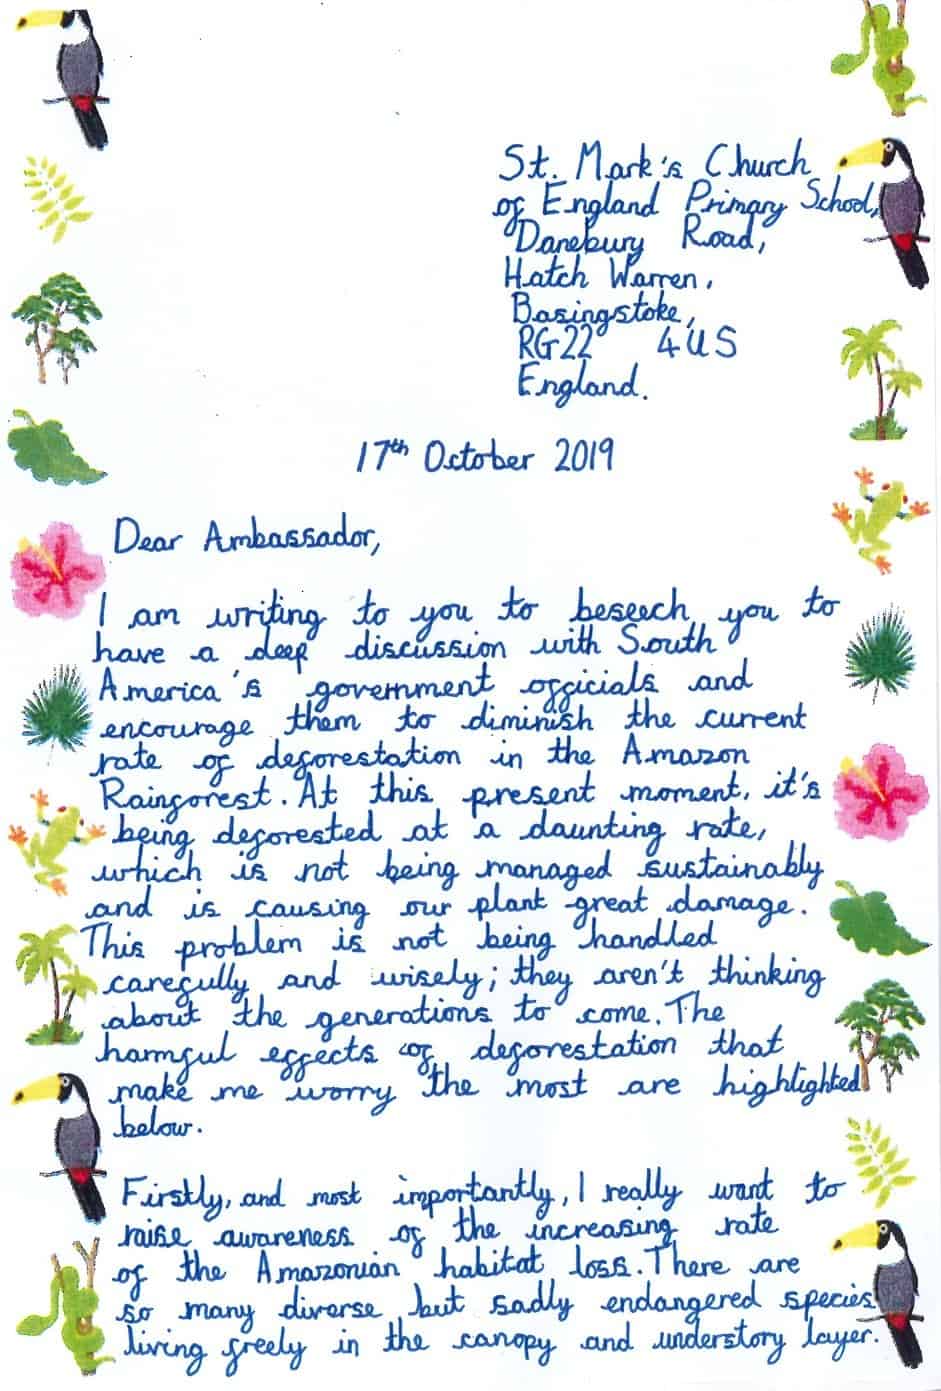 St. Mark's Church
of England Primary School,
Danebury Road,
Hatch Warren,
Basingstoke,
RG22 4US
England.
17th October 2019
Dear Ambassador,
I am writing to you to beseech you to
have a deep discussion with South
America's government officials and
encourage them to diminish the current
rate of deforestation in the Amazon
Rainforest. At this present moment, it's
being deforested at a daunting rate,
which is not being managed sustainably
and is causing our plant great damage.
This problem is not being handled
carefully and wisely; they aren't thinking
about the generations to come. The
harmful effects of deforestation that
make me worry the most are highlighted
below.
Firstly, and most importantly, I really want to
raise awareness of the increasing rate
of the Amazonian habitat loss. There are
so many diverse but sadly endangered species
living freely in the canopy and understory layer.